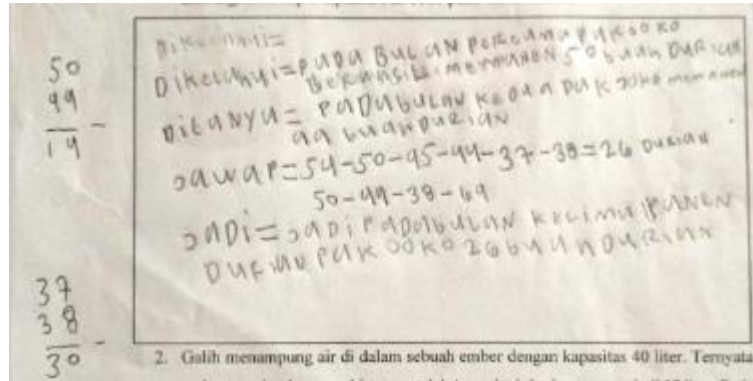 50
44
14 -
Diketahui=
Diketahui=PADA BULAN PERTAMA PAK JOKO
BERHASIL MEMANEN 50 BUAH DURIAN
DITANYA= PADA BULAN KEDUA PAK JOKO MEMANEN
44 BUAH DURIAN
JAWAB=54-50-45-44-37-38=26 DURIAN
50-44-38-69
JADI=JADI PADA BULAN KELIMA PANEN
DURIAN PAK JOKO 26 BUAH DURIAN
37
38
30 -
2. Galih menampung air di dalam sebuah ember dengan kapasitas 40 liter. Ternyata